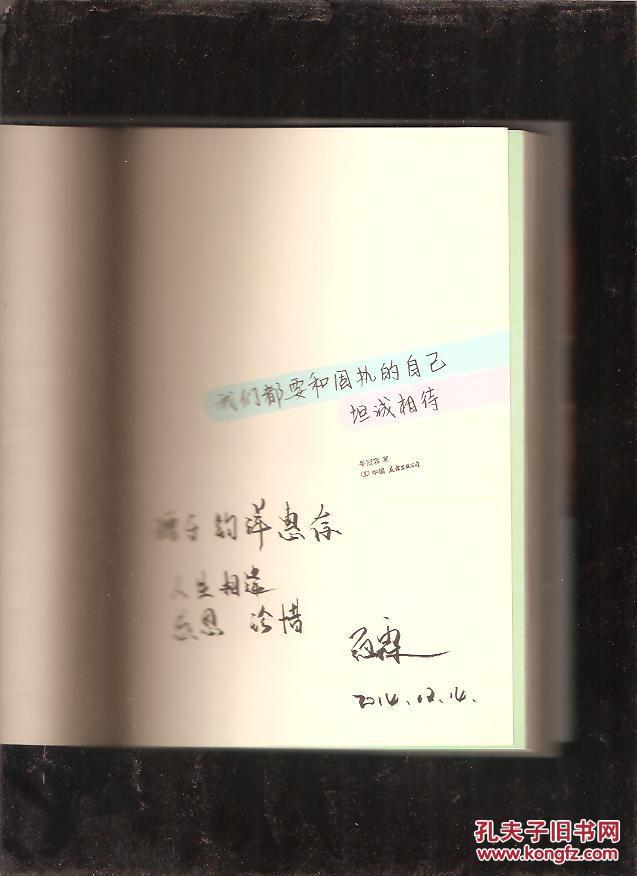 我们都要和固执的自己
坦诚相待
著
中国友谊出版公司
惠存
人生相逢
感恩 珍惜
2014.12.14.
孔夫子旧书网
www.kongfz.com